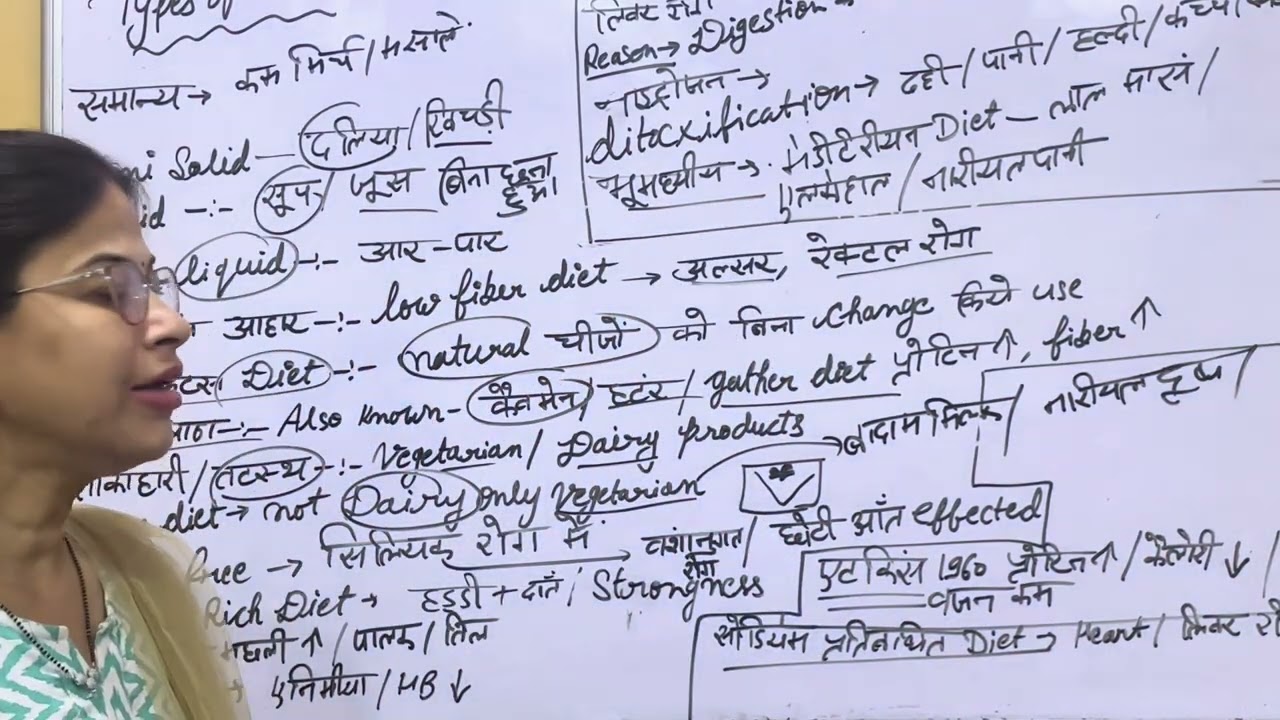 Types of
समान्य → कम मिर्च / मसाले
Solid — दलिया / खिचड़ी
सूप / जूस बिना छना हुआ
liquid -:- आर-पार
आहार -:- low fiber diet → अल्सर, रेक्टल रोग
Diet -:- natural चीजों को बिना change किये use
Also known - केवमेन / हटंर / gather diet प्रोटिन ↑, fiber ↑
/ तटस्थ -:- Vegetarian / Dairy products
diet → not Dairy only Vegetarian → बादाम मिल्क / नारीयल दूध /
free → सिलियक रोग में → वंशानुगत रोग / छोटी आँत effected
Rich Diet → हड्डी + दाँत / Strongness
मछली ↑ / पालक / तिल
→ एनिमीया / HB ↓
लिवर रोग
Reason → Digestion
→
ditoxification → दही / पानी / हल्दी /
भूमध्यीय → मेडीटेरीयन Diet — लाल मासं /
एल्कोहाल / नारीयल पानी
एटकिंस 1960 प्रोटिन ↑ / कैलोरी ↓ /
वजन कम
सोडियम प्रतिबंधित Diet → Heart / लिवर